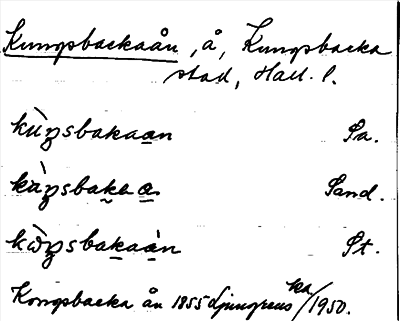 Kungsbackaån, å, Kungsbacka
stad, Hall. l.
kùŋsbakaan Sa.
kàŋsbakaa Sand.
kꞷ̀ŋsbakaàn St.
Kongsbacka ån 1855 Ljunggrens ka/1950.